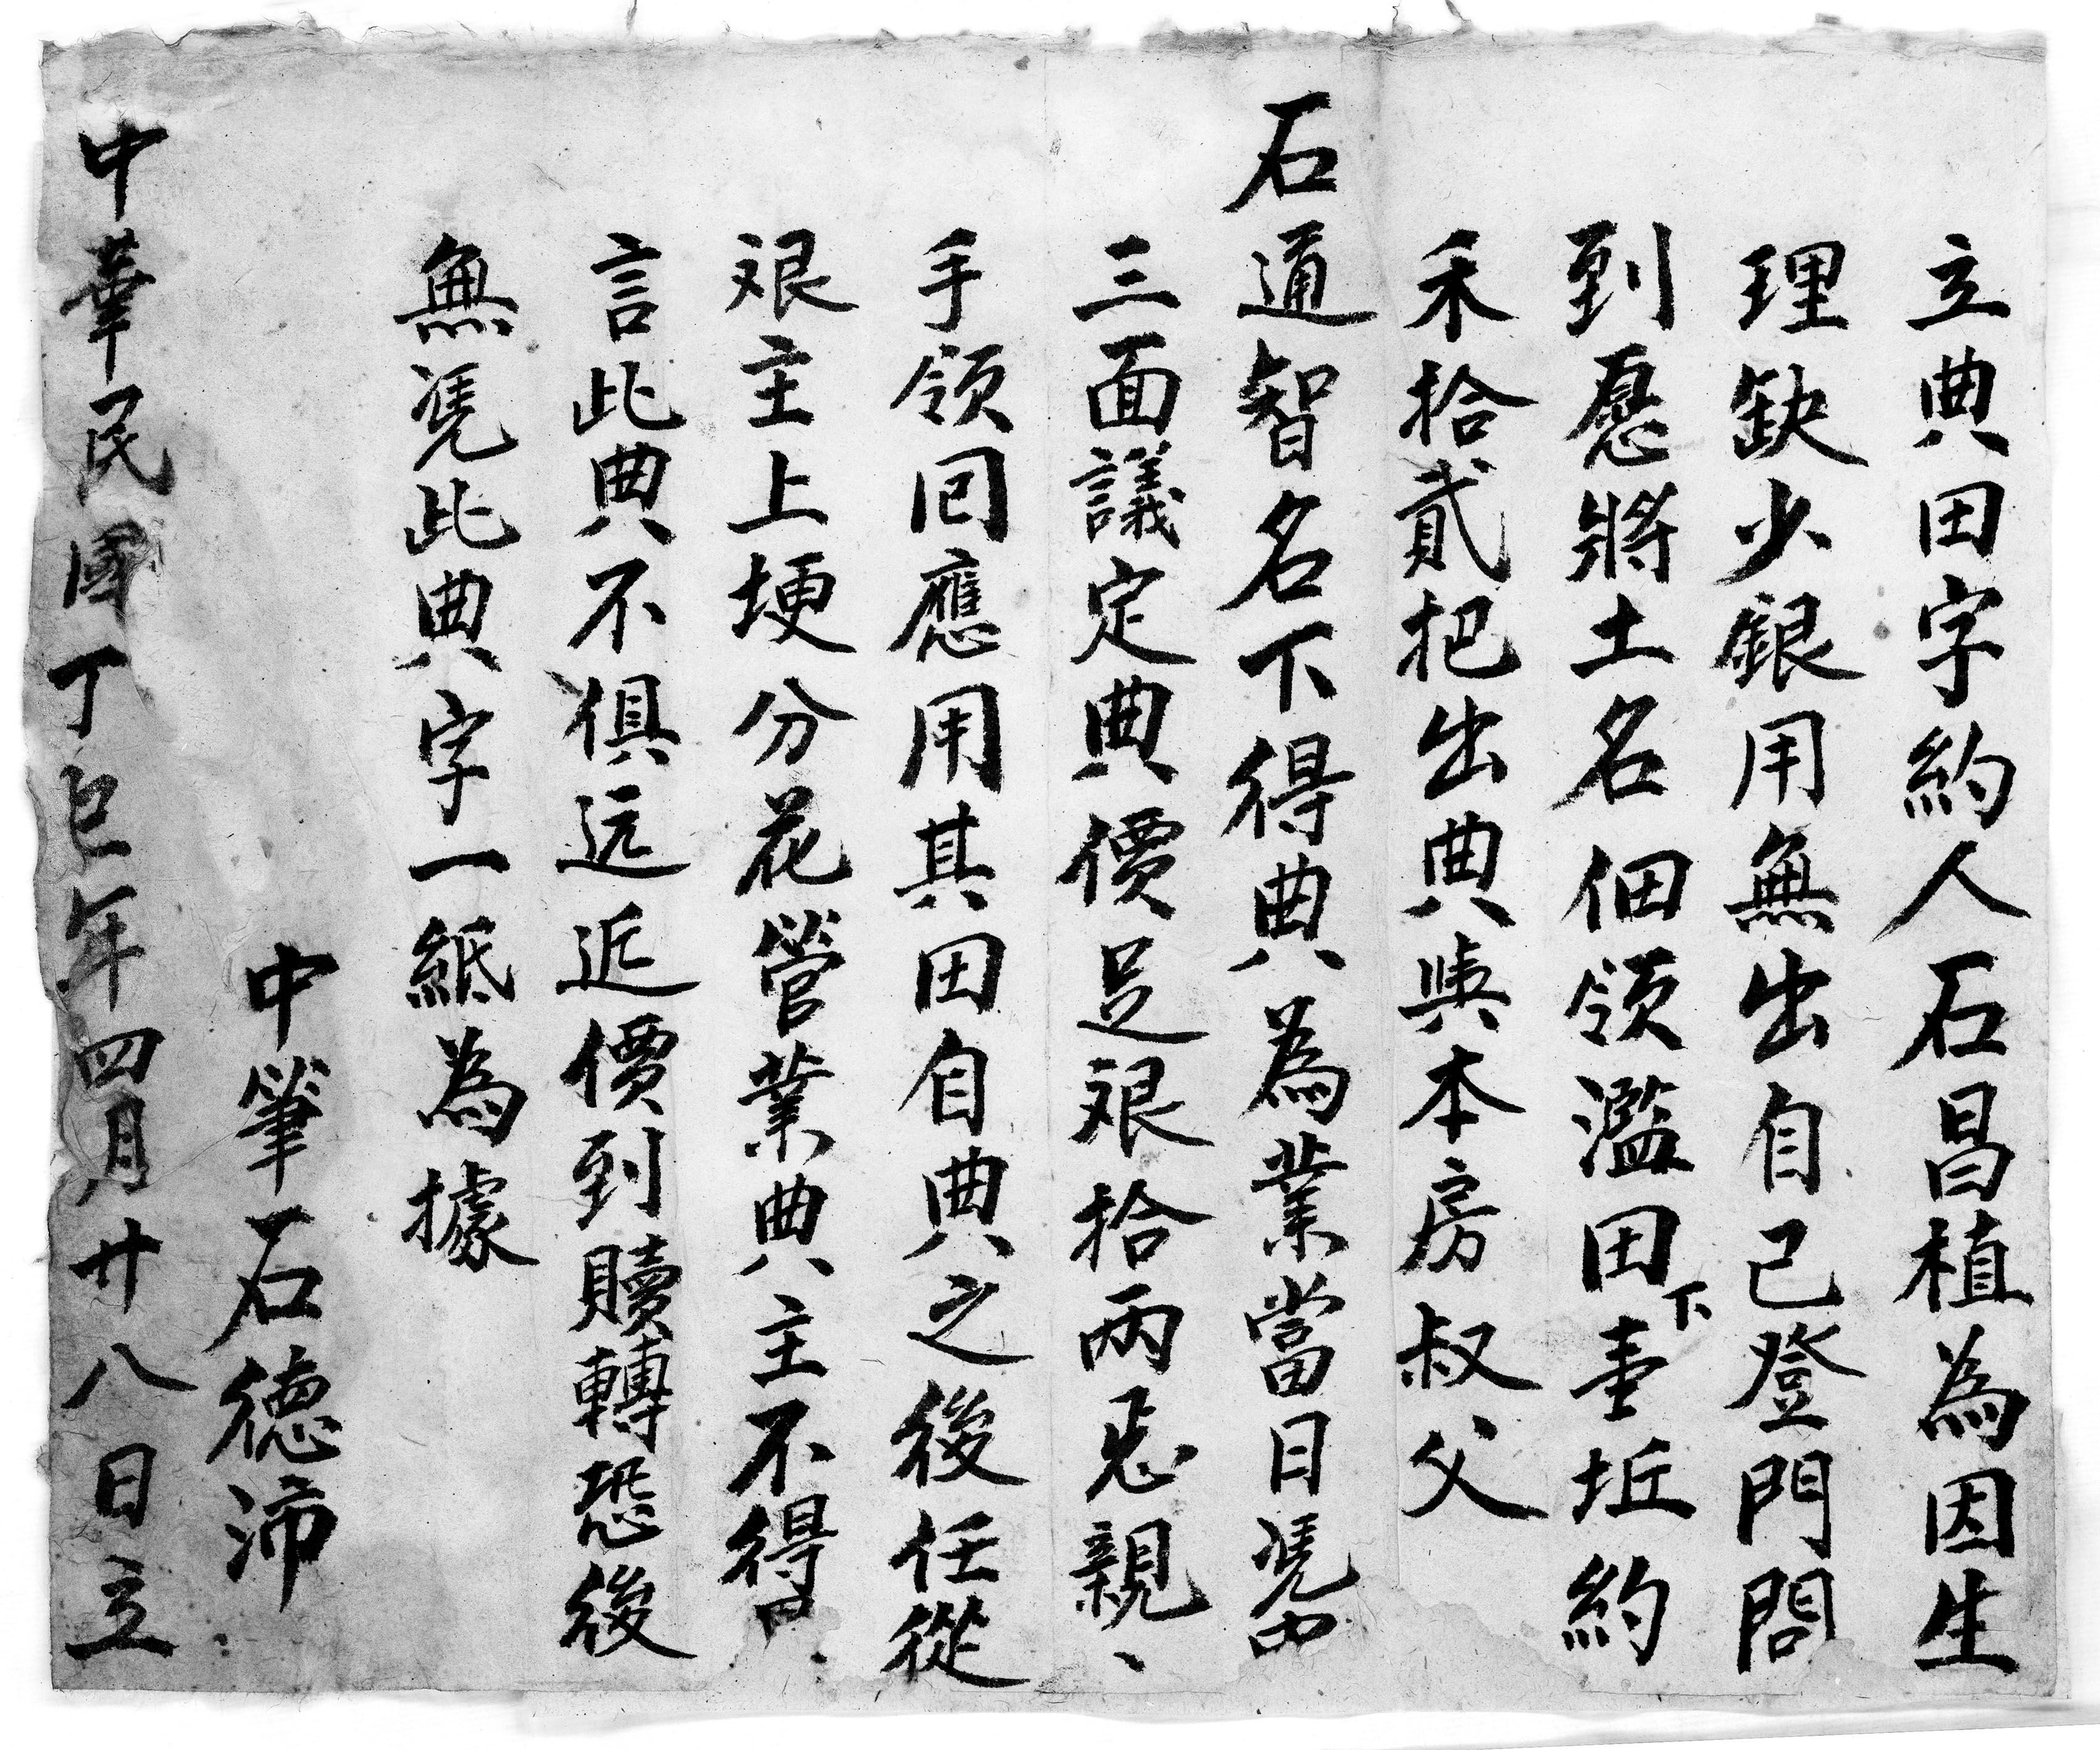 立典田字約人石昌植為因生
理缺少銀用無出自己登門問
到愿將土名佃領濫田下壹坵約
禾拾貳把出典與本房叔父
石通智名下得典為業當日凴中
三面議定典價足艮拾兩正親、
手領回應用其田自典之後任從
艮主上埂分花管業典主不得
言此典不俱远近價到贖轉恐後
無凴此典字一紙為據
中筆石德沛
中華民國丁巳年四月廿八日立